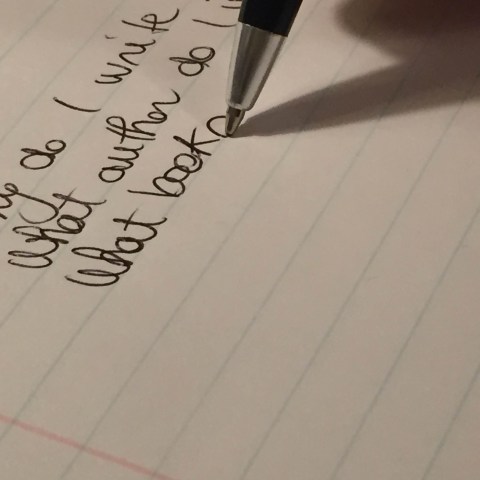 Why do I write
What author do I
What book